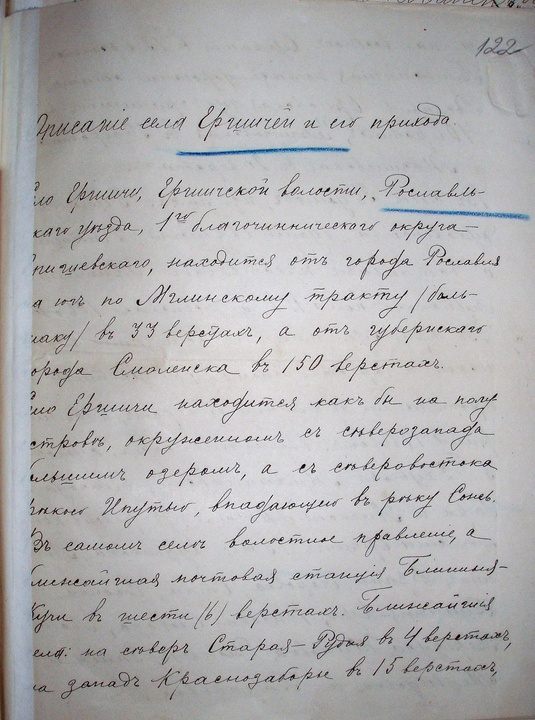 122
Описаніе села Ершичей и его прихода
ло Ершичи, Ершичской волости, Рославль-
скаго уѣзда, 1го благочинническаго округа-
находится отъ города Рославля
на югъ по Мглинскому тракту (боль-
шаку) въ 33 верстахъ, а отъ губернскаго
города Смоленска въ 150 верстахъ.
ло Ершичи находится какъ бы на полу-
островѣ, окруженномъ съ сѣверозапада
большимъ озеромъ, а съ сѣверовостока
рѣкою Ипутью, впадающею въ рѣку Сожъ.
Въ самомъ селѣ волостное правленіе, а
ближайшая почтовая станція
въ шести (6) верстахъ. Ближайшія
села: на сѣверъ Старая-Рудня въ 4 верстахъ,
на западъ Краснозаборье въ 15 верстахъ,